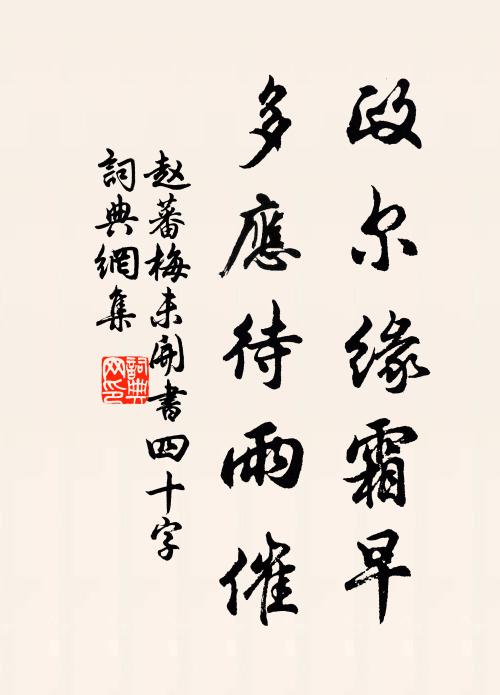 政尔缘霜早
多應待雨催
赵蕃梅未開書四十字
詞典網集
詞典网印